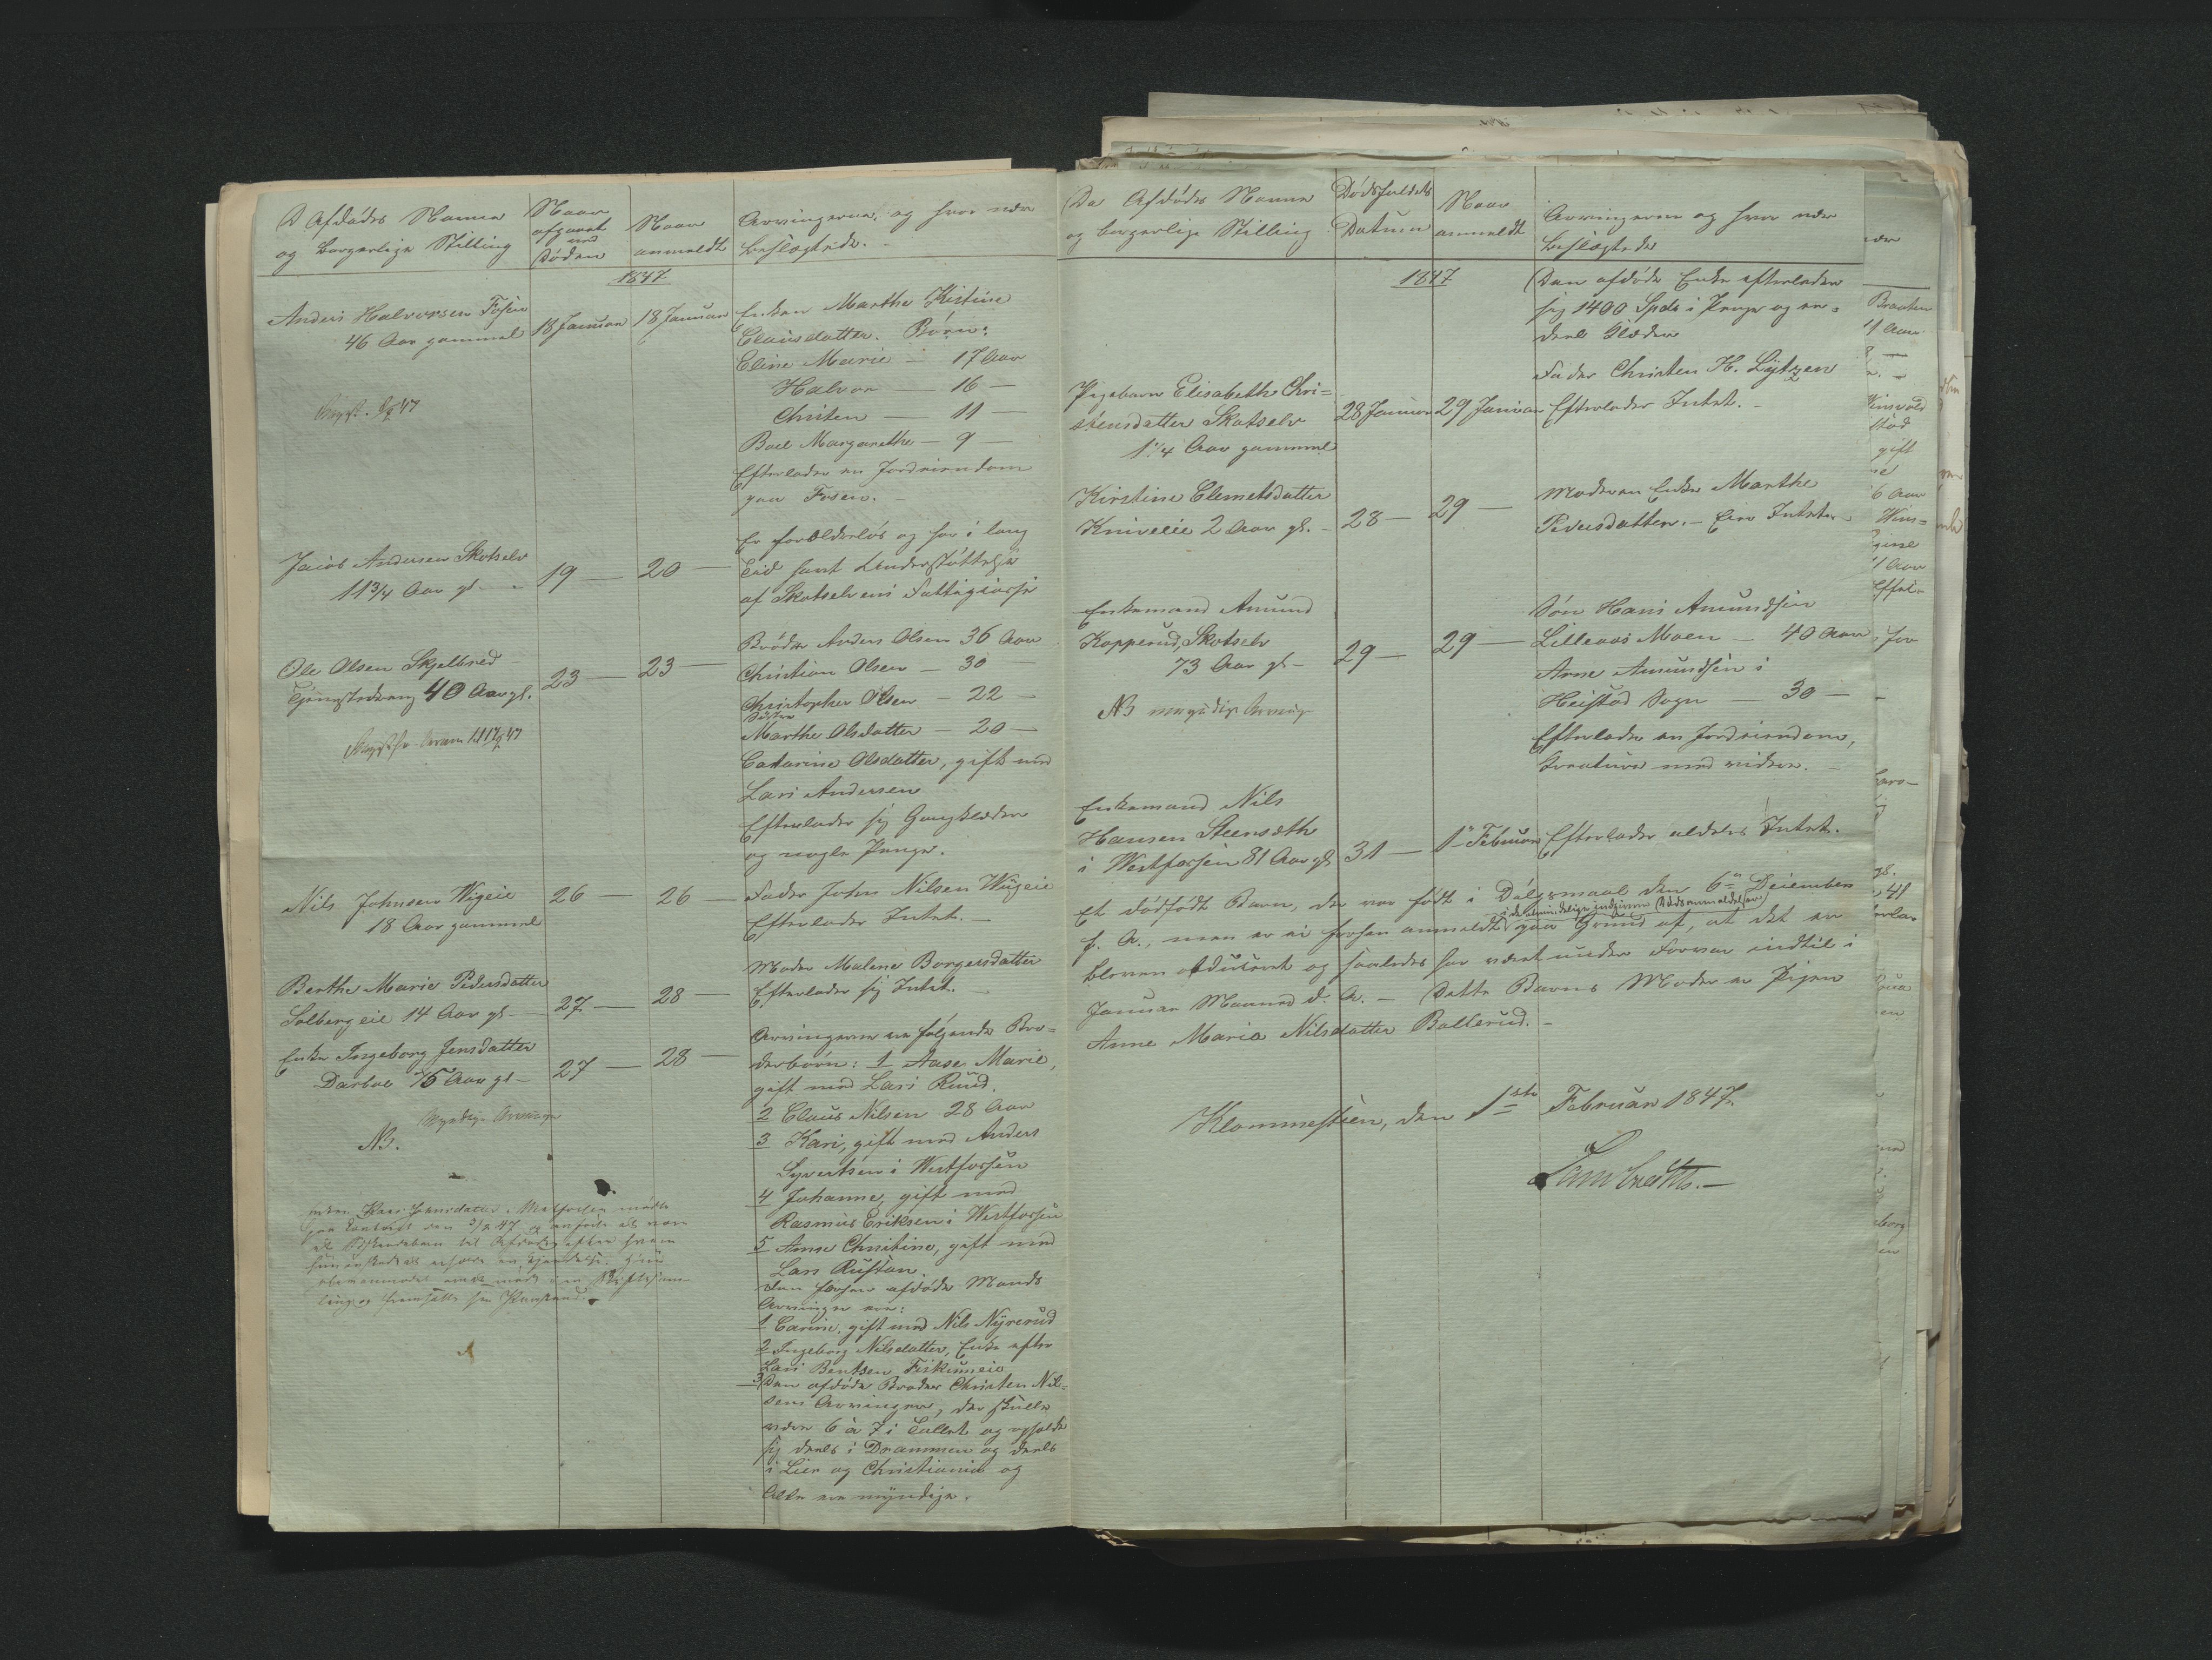 D Afdødes Navne
og Borgerlige Stilling
Naar
afgaaet
ved
Døden
Naar
anmeldt
Arvingerne, og hvor nær
beslægtede.
1847
Anders Halvorsen Fosen
46 Aar gammel
18 Januar
18 Januar
Enken Marthe Kistine
Clausdatter. Børn:
Eline Marie — 17 Aar
Halvor — 16 —
Christen — 11 —
Boel Margarethe — 9 —
Efterlader en Jordeiendom
paa Fosen.
Jacob Andersen Skotselv
11 3/4 Aar gl.
19 —
20 —
Er forældreløs og har i lang
Tid havt Understøttelse
af Skotselvens Fattigcasse
Ole Olsen Skjelbred
40 Aar gl.
23 —
23 —
Brødre Anders Olsen 36 Aar
Christian Olsen — 30 —
Christopher Olsen — 22 —
Søstre
Marthe Olsdatter — 20 —
Catarine Olsdatter, gift med
Lars Andersen
Efterlader sig Gangklæder
og nogle Penge.
Nils Johnsen Wigeie
18 Aar gammel
26 —
26 —
Fader John Nilsen Wigeie
Efterlader Intet. —
Berthe Marie Pedersdatter
Solbergeie 14 Aar gl. —
27 —
28 —
Moder Malene Borgersdatter
Efterlader sig Intet. —
Enke Ingeborg Jensdatter
Darboe 75 Aar gl —
27 —
28 —
Myndige Arvinger
NB.
Arvingerne ere følgende Bro=
derbørn: 1 Aase Marie,
gift med Lars Ruud.
2 Claus Nilsen 28 Aar
3 Kari, gift med Anders
Syvertsen i Westfossen
4 Johanne, gift med
Rasmus Eriksen i Westfossen
5 Anne Christine, gift med
Lars Rustan.
Den forhen afdøde Mands
Arvinger ere:
1 Carine, gift med Nils Nyrerud
2 Ingeborg Nilsdatter, Enke efter
Lars Bentsen Fiskumeie
3 Den afdøde Broder Christen Nil=
sens Arvinger, der skulle
være 6 à 7 i Tallet og opholde
sig deels i Drammen og deels
i Lier og Christiania og
Alle ere myndige.
De Afdødes Navne
og borgerlige Stilling
Dødsfaldets
Datum
Naar
anmeldt
Arvingerne og hvor nær
beslægtede
1847
Den afdøde Enke efterlader
sig 1400 Spdr i Penge og en=
deel Klæder
Pigebarn Elisabeth Chri=
stensdatter Skotselv
1 1/4 Aar gammel
28 Januar
29 Januar
Fader Christen H. Lytzen
Efterlader Intet. —
Kirstine Clemetsdatter
Kniveeie 2 Aar gl. —
28 —
29 —
Moderen Enke Marthe
Pedersdatter. — Eier Intet. —
Enkemand Amund
Kopperud, Skotselv
73 Aar gl —
29 —
29 —
NB myndige Arvinge
Søn Hans Amundsen
Lilleaas Moen — 40 Aar
Arne Amundsen i
Heistad Sogn — 30 —
Efterlader en Jordeiendom,
Kreature med videre. —
Enkemand Nils
Hansen Steensæth
i Westfossen 81 Aar gl
31 —
1 Februar
Efterlader aldeles Intet.
Et dødfødt Barn, der var født i Dølgsmaal den 6 December
f. A., men er ei forhen anmeldt paa Grund af, at det er
i de almindelige indgivne Dødsanmeldelser
bleven obduceret og saaledes har været under Forvar indtil i
Januar Maaned d. A. — Dette Barns Moder er Pigen
Anne Maria Nilsdatter Ballerud. —
Klommesteen, den 1ste Februar 1847.
Lambrechts. —